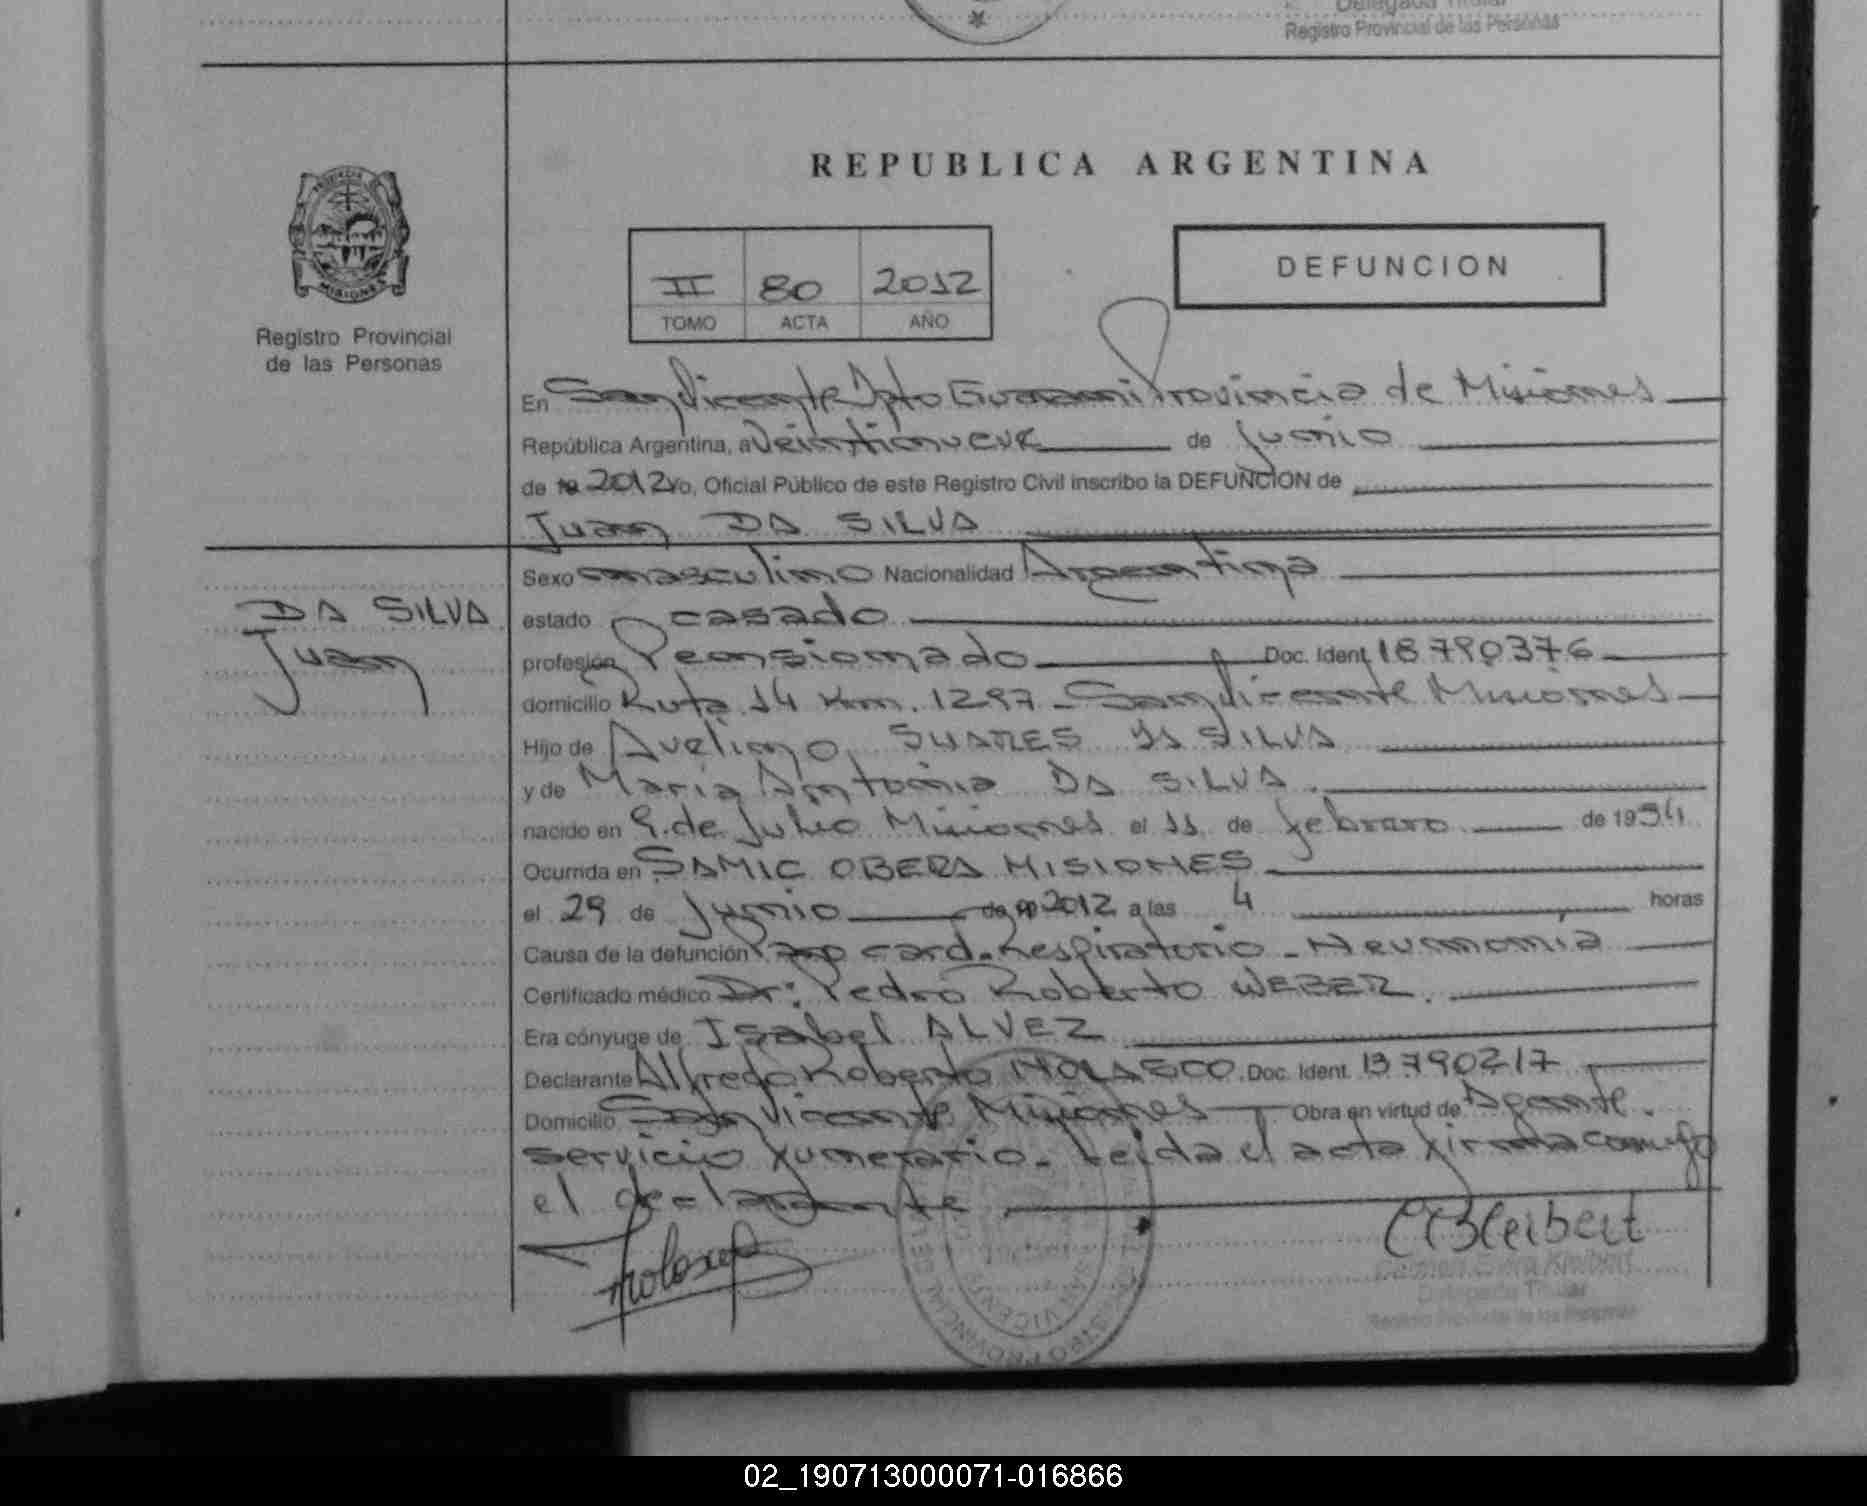 Registro Provincial de las Personas
REPUBLICA ARGENTINA
PROVINCIA DE
MISIONES
Registro Provincial
de las Personas
II 80 2012
TOMO ACTA AÑO
DEFUNCION
En San Vicente Dpto Guarani Provincia de Misiones
República Argentina, a Veintinueve de Junio
de 19 2012 Yo, Oficial Público de este Registro Civil inscribo la DEFUNCION de
Juan DA SILVA
Sexo masculino Nacionalidad Argentina
DA SILVA
Juan
estado casado
profesión Pensionado Doc. Ident. 18790376
domicilio Ruta 14 Km. 1297 - San Vicente Misiones
Hijo de Avelino SUARES DA SILVA
y de Maria Antonia DA SILVA.
nacido en 9. de Julio Misiones el 11 de febrero de 19
Ocurrida en SAMIC OBERA MISIONES
el 29 de Junio de 2012 a las 4 horas
Causa de la defunción Paro card. Respiratorio - Neumonia
Certificado médico Dr: Pedro Roberto WEBER.
Era cónyuge de Isabel ALVEZ
Declarante Alfredo Roberto NOLASCO. Doc. Ident. 13790217
Domicilio San Vicente Misiones Obra en virtud de Agente.
servicio funerario. Leida el acta firma conmigo
el declarante
Carmen Elvira Kleibert
Delegada Titular
Registro Provincial de las Personas
SAN VICENTE
02_190713000071-016866